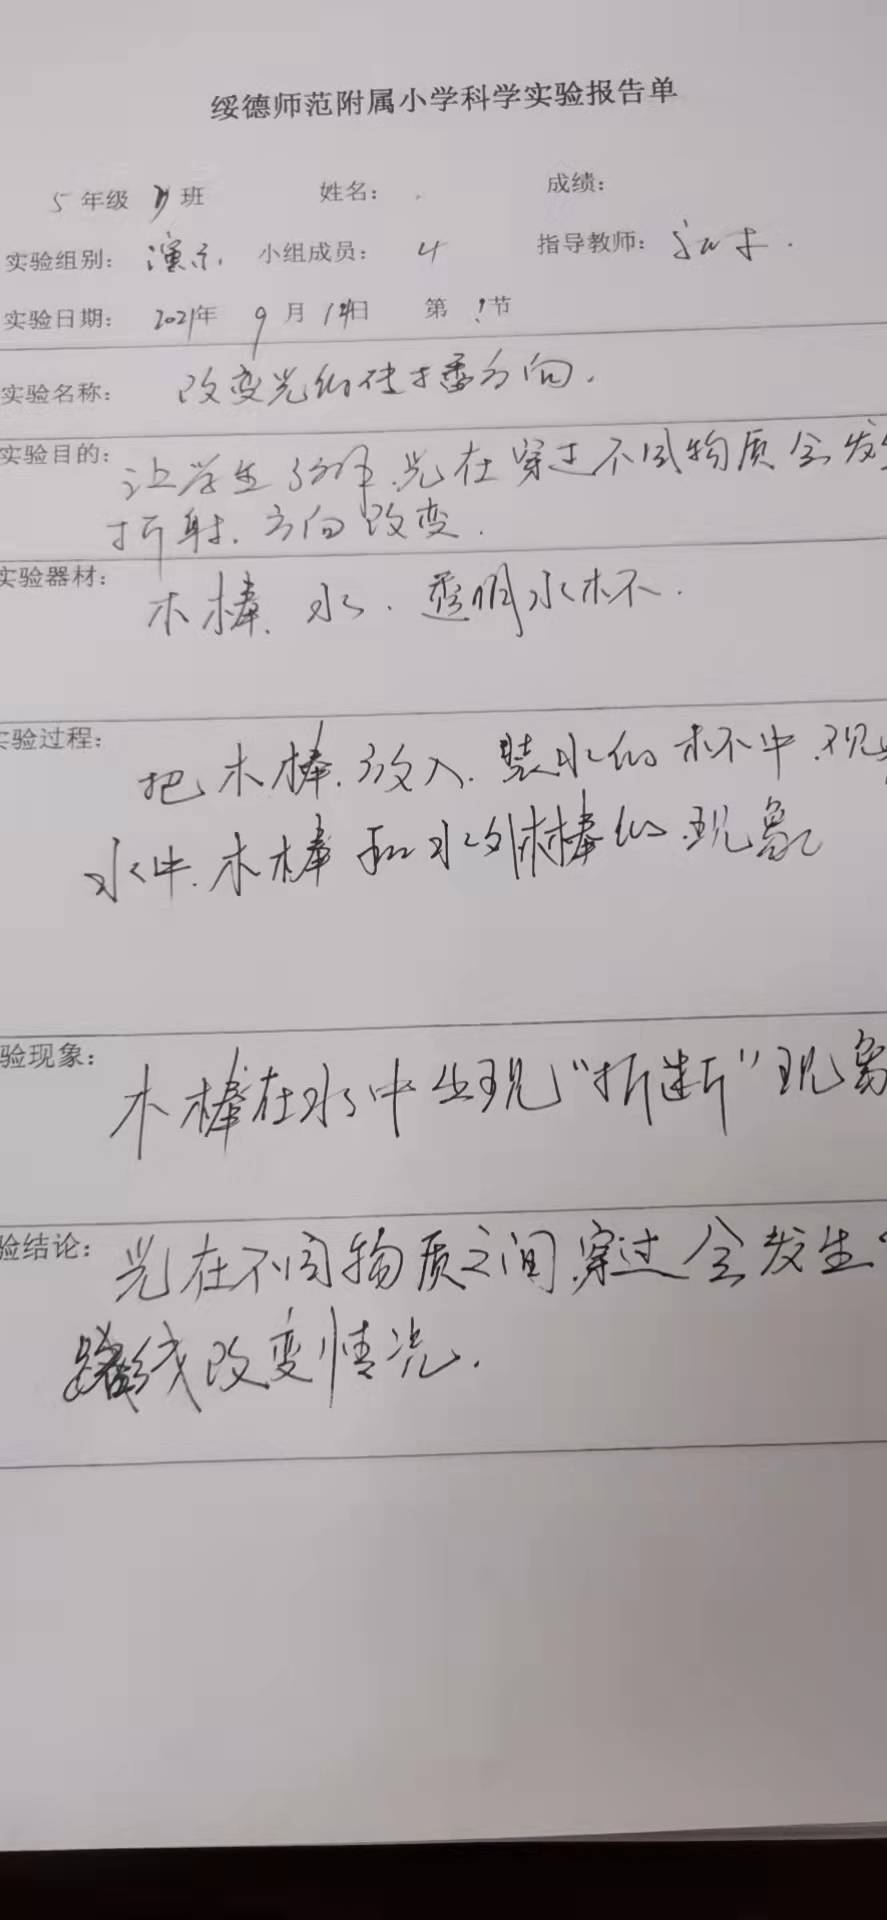 绥德师范附属小学科学实验报告单
5 年级 班 姓名： 成绩：
实验组别： 演示 小组成员： 4 指导教师：
实验日期： 2021年 9 月 日 第 节
实验名称： 改变光的传播方向.
实验目的： 让学生了解光在穿过不同物质会发生
折射.方向改变.
实验器材： 木棒.水.透明水杯.
实验过程： 把木棒.放入.装水的杯中.观
水中.木棒和水外木棒的.现象
验现象： 木棒在水中出现“折断”现象
验结论： 光在不同物质之间.穿过会发生
路线改变情况.